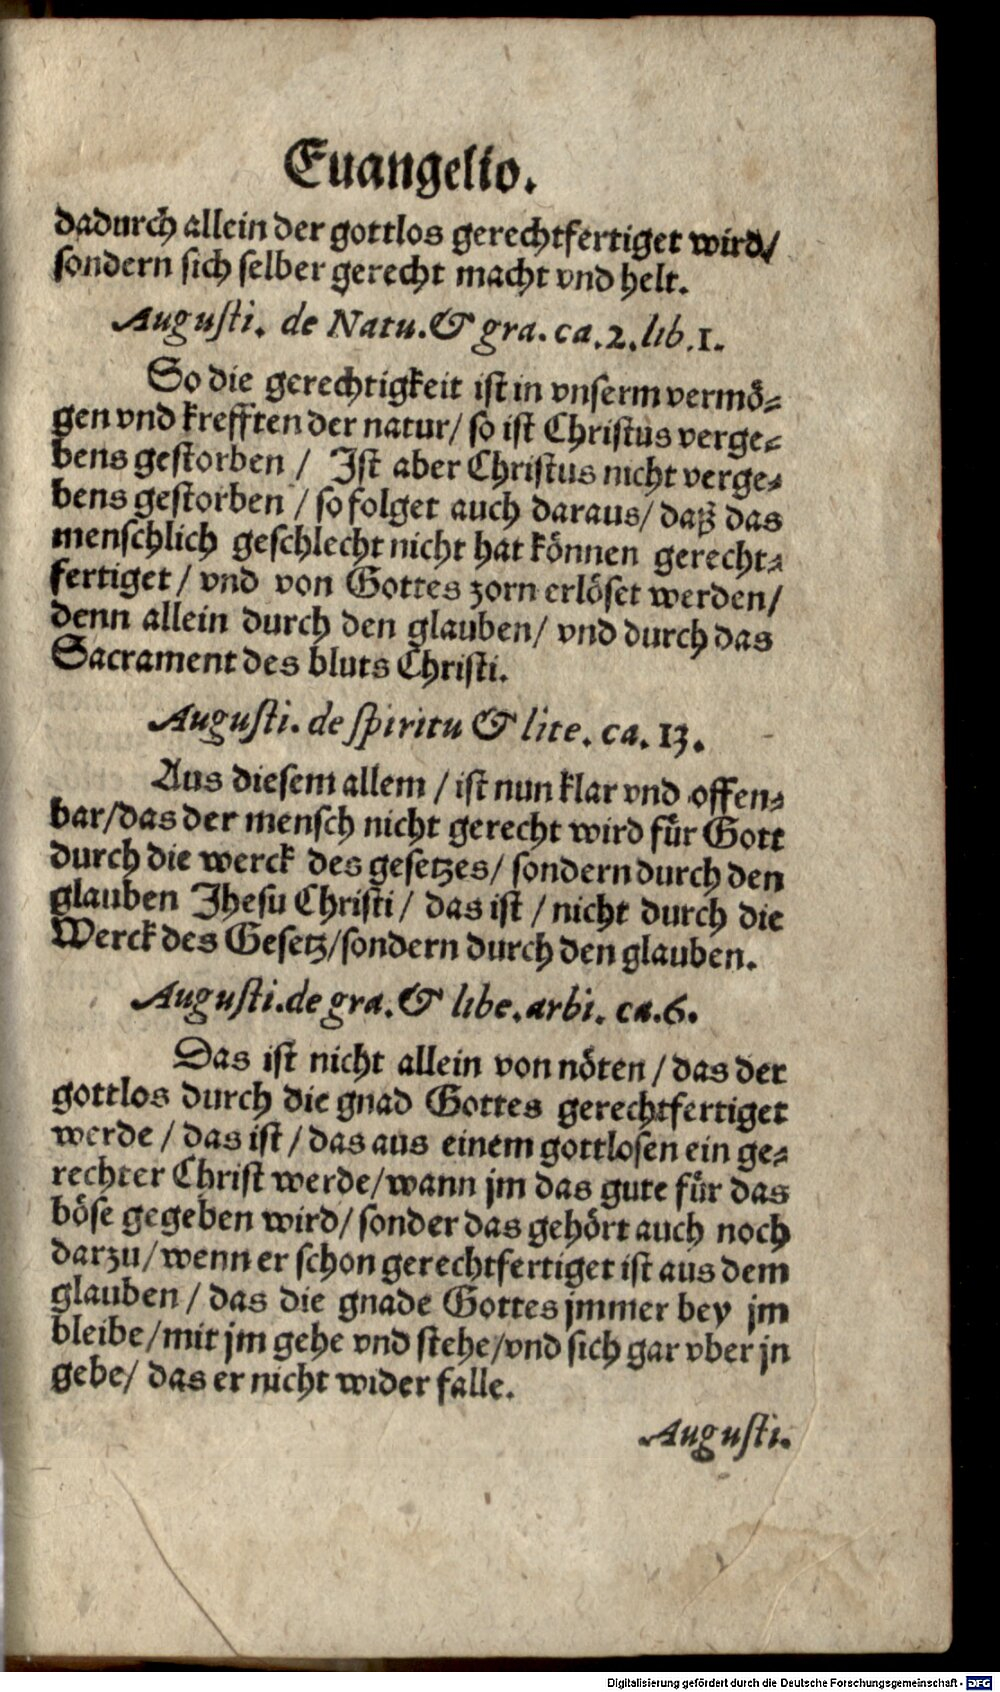 Euangelio.
dadurch allein der gottlos gerechtfertiget wird/
sondern sich selber gerecht macht vnd helt.
Augusti. de Natu. & gra. ca. 2. lib. 1.
So die gerechtigkeit ist in vnserm vermö⸗
gen vnd krefften der natur/ so ist Christus verge⸗
bens gestorben / Ist aber Christus nicht verge⸗
bens gestorben / so folget auch daraus/ daß das
menschlich geschlecht nicht hat können gerecht⸗
fertiget / vnd von Gottes zorn erlöset werden/
denn allein durch den glauben/ vnd durch das
Sacrament des bluts Christi.
Augusti. de spiritu & lite. ca. 13.
Aus diesem allem / ist nun klar vnd offen⸗
bar/das der mensch nicht gerecht wird für Gott
durch die werck des gesetzes/ sondern durch den
glauben Jhesu Christi / das ist / nicht durch die
Werck des Gesetz/sondern durch den glauben.
Augusti. de gra. & libe. arbi. ca. 6.
Das ist nicht allein von nöten / das der
gottlos durch die gnad Gottes gerechtfertiget
werde / das ist / das aus einem gottlosen ein ge⸗
rechter Christ werde/wann jm das gute für das
böse gegeben wird/ sonder das gehört auch noch
darzu/wenn er schon gerechtfertiget ist aus dem
glauben / das die gnade Gottes jmmer bey jm
bleibe/mit jm gehe vnd stehe/vnd sich gar vber jn
gebe/ das er nicht wider falle.
Augusti.
Digitalisierung gefördert durch die Deutsche Forschungsgemeinschaft - DFG